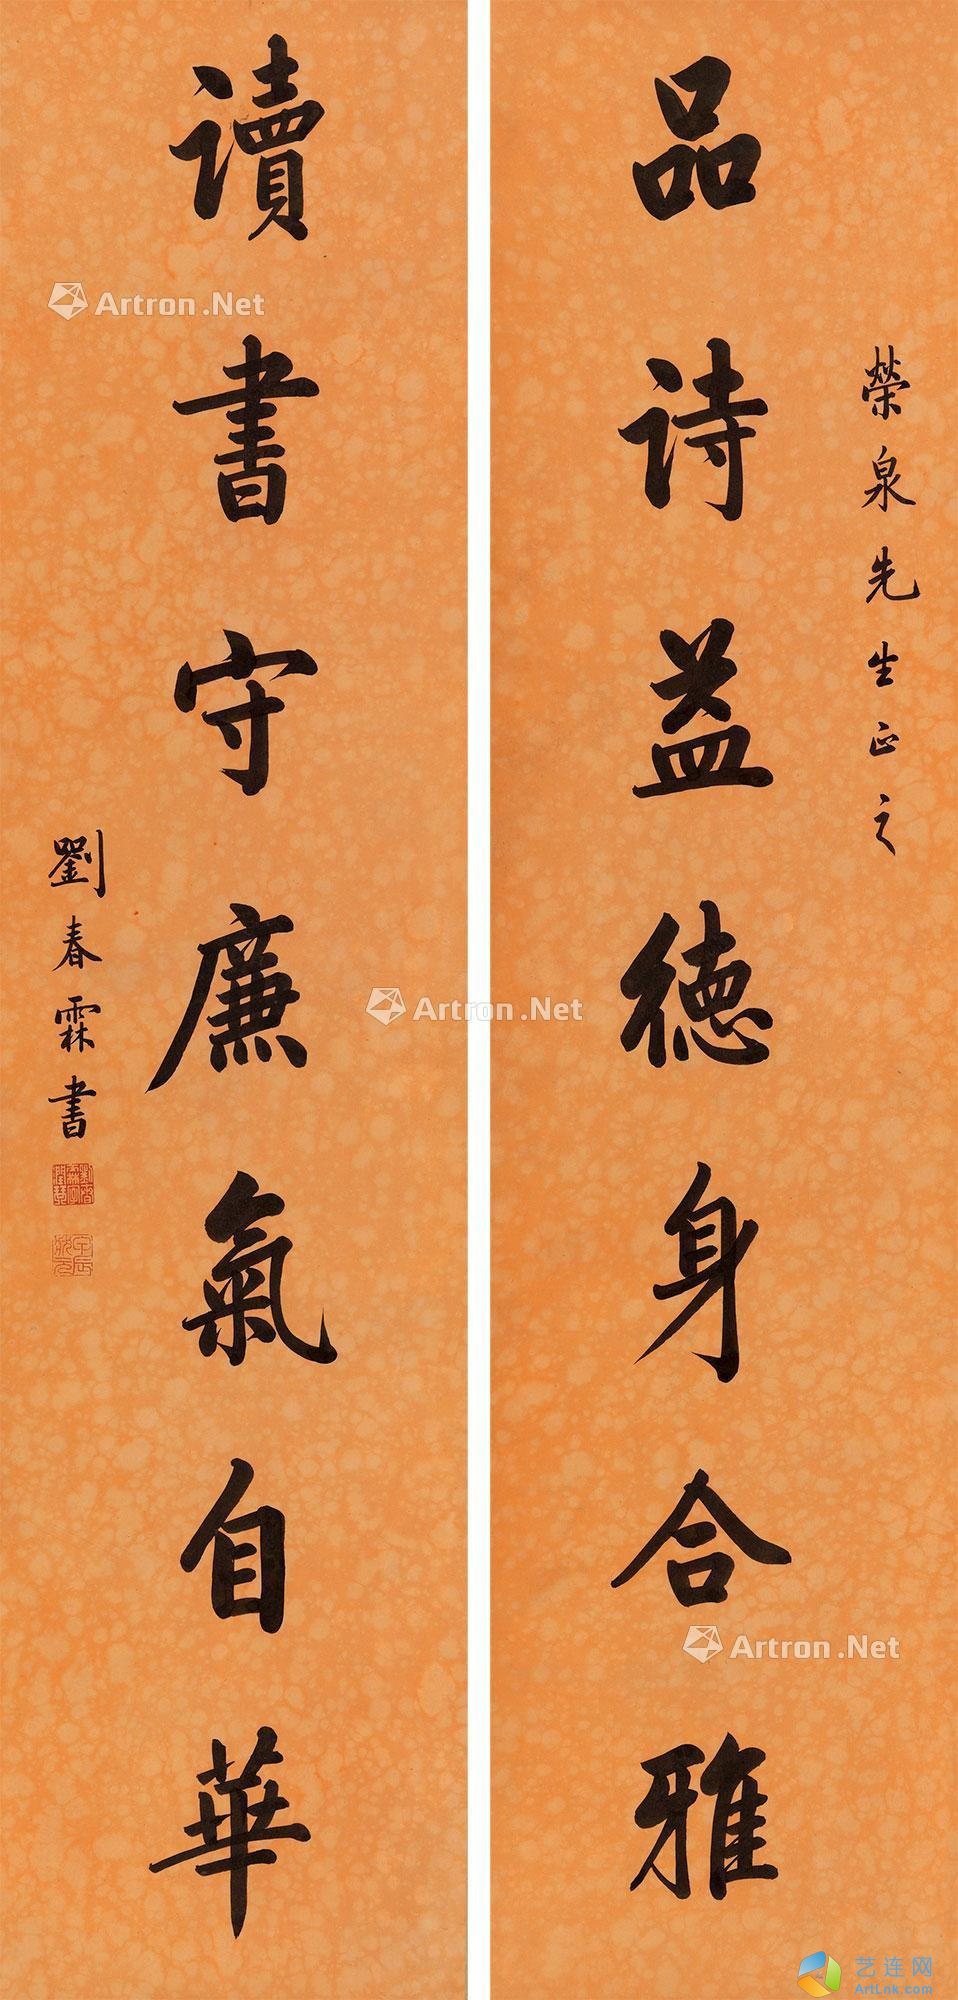 榮泉先生正之
品詩益德身合雅
讀書守廉氣自華
劉春霖書
Artron.Net
Artron.Net
Artron.Net
艺连网
ArtLnk.com